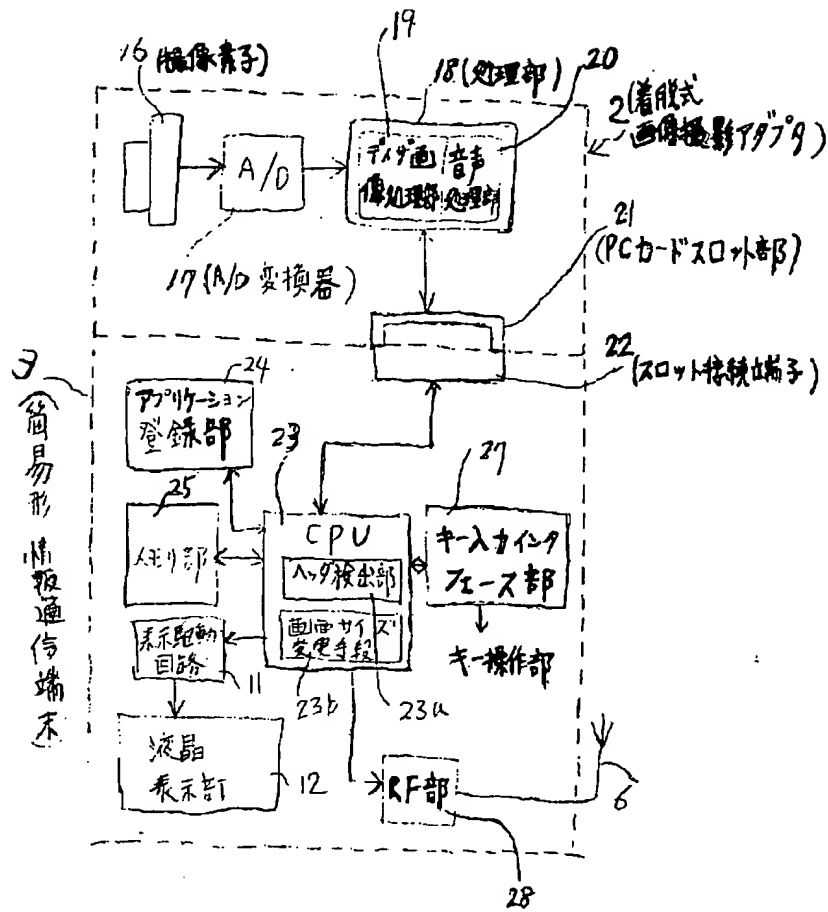 16(撮像素子)
19
18(処理部)
20
2(着脱式
画像撮影アダプタ)
A/D
ディジ画
像処理部
音声
処理部
17(A/D変換器)
21
(PCカードスロット部)
22
(スロット接続端子)
3
(簡易形情報通信端末)
24
アプリケーション
登録部
23
27
25
メモリ部
CPU
ヘッダ検出部
画面サイズ
変更手段
キー入力インタ
フェース部
表示駆動
回路
11
23b
23a
キー操作部
液晶
表示部
12
RF部
6
28